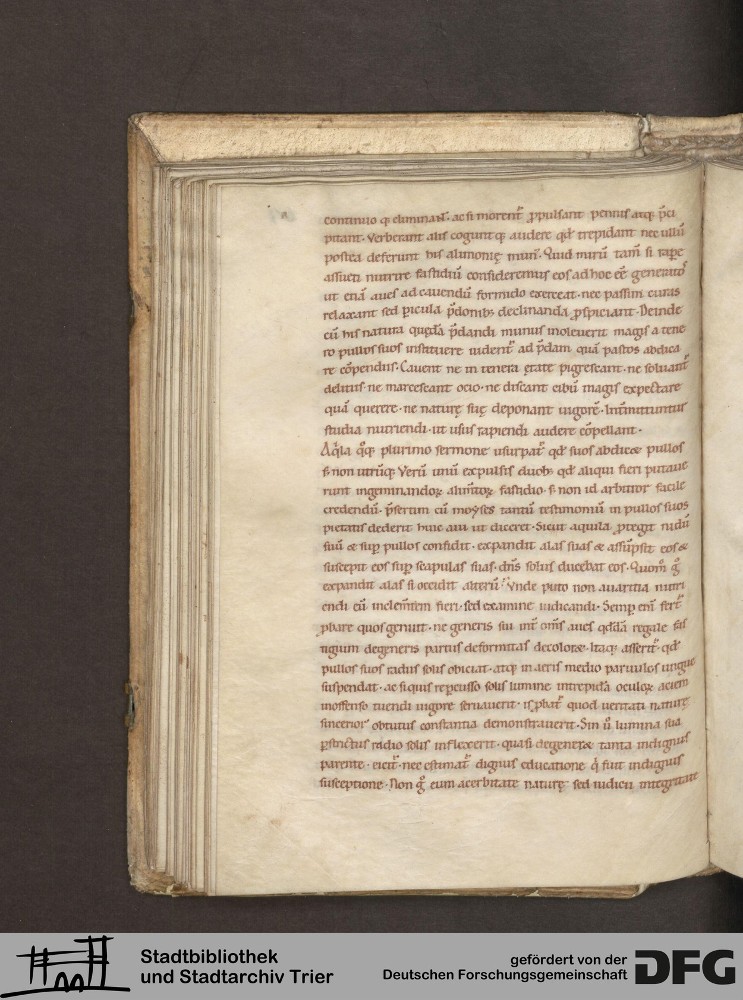 continuo q eliminant̃. ac si morent̃ ꝓpulsant pennis atq; p̃ci
pitant. Verberant alis cogunt q; audere qđ trepidant nec ullũ
postea deferunt his alimonię mun̄. Quid mirũ tam̃ si rape
assueti nutrire fastidiũ consideremus eos ad hoc eẽ generatos
ut etiã aues ad cauendũ formido exerceat. nec passim curas
relaxant sed ꝑicula p̃donib; declinanda ꝓspiciant. Deinde
cũ his natura quędã p̃dandi munus inoleuerit magis a tene
ro pullos suos instituere uident̃ ad p̃dam quã pastos abdica
re cõpendiis. Cauent ne in tenera ętate pigrescant. ne soluant̃
delitiis. ne marcescant ocio. ne discant cibũ magis expectare
quã querere. ne naturę suę deponant uigorẽ. Int̃mittuntur
studia nutriendi. ut usus rapiendi audere cõpellant.
Aq̃la q̃q; plurimo sermone usurpat̃ qđ suos abdicet pullos
s; non utrũq; Verũ unũ ex pulsis duob; qđ aliqui fieri putaue
runt ingeminandoꝝ alim̃toꝝ fastidio. s; non id arbitror facile
credendũ. p̃sertim cũ moyses tantũ testimoniũ in pullos suos
pietatis dederit huic aui ut diceret. Sicut aquila ꝓtegit nidũ
suũ & sup pullos confidit. expandit alas suas & assũpsit eos &
suscepit eos sup scapulas suas. dñs solus ducebat eos. Quom̃ g̊
expandit alas si occidit alterũ? Vnde puto non auaritia nutri
endi eũ inclem̃tem fieri. sed examine iudicandi. Semp eni fert̃
ꝓbare quos genuit. ne generis sui int̃ om̃s aues qđdã regale fas
tigium degeneris partus deformitas decoloret. Itaq; asserit̃. qđ
pullos suos radiis solis obiciat. atq; in aeris medio paruulos ungue
suspendat. ac si quis repercusso solis lumine intrepidã oculoꝝ aciem
inoffenso tuendi uigore seruauerit. is ꝓbat̃ quod ueritatẽ naturę
sincerior obtutus constantia demonstrauerit. Sin ũ lumina sua
pstrictus radio solis inflexerit. quasi degener & tanta indignus
parente. eicit̃. nec estimat̃ dignus educatione q̊ fuit indignus
susceptione. Non g̊ eum acerbitate naturę sed iudicii integritate
Stadtbibliothek
und Stadtarchiv Trier
gefördert von der
Deutschen Forschungsgemeinschaft
DFG